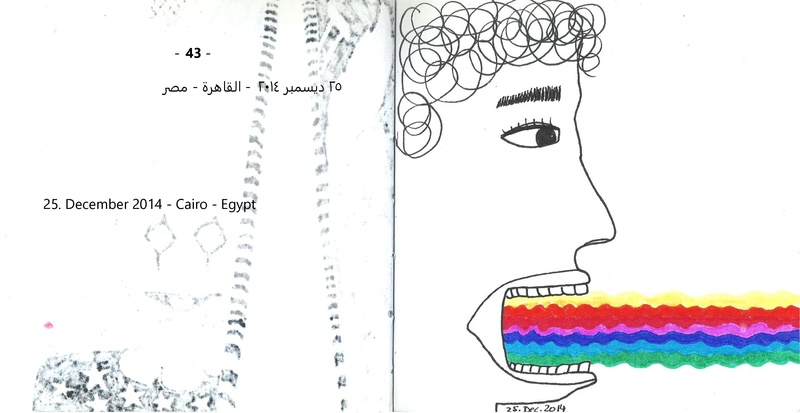 - 43 -
٢٥ ديسمبر ٢٠١٤ - القاهرة - مصر
25. December 2014 - Cairo - Egypt
25. Dec. 2014